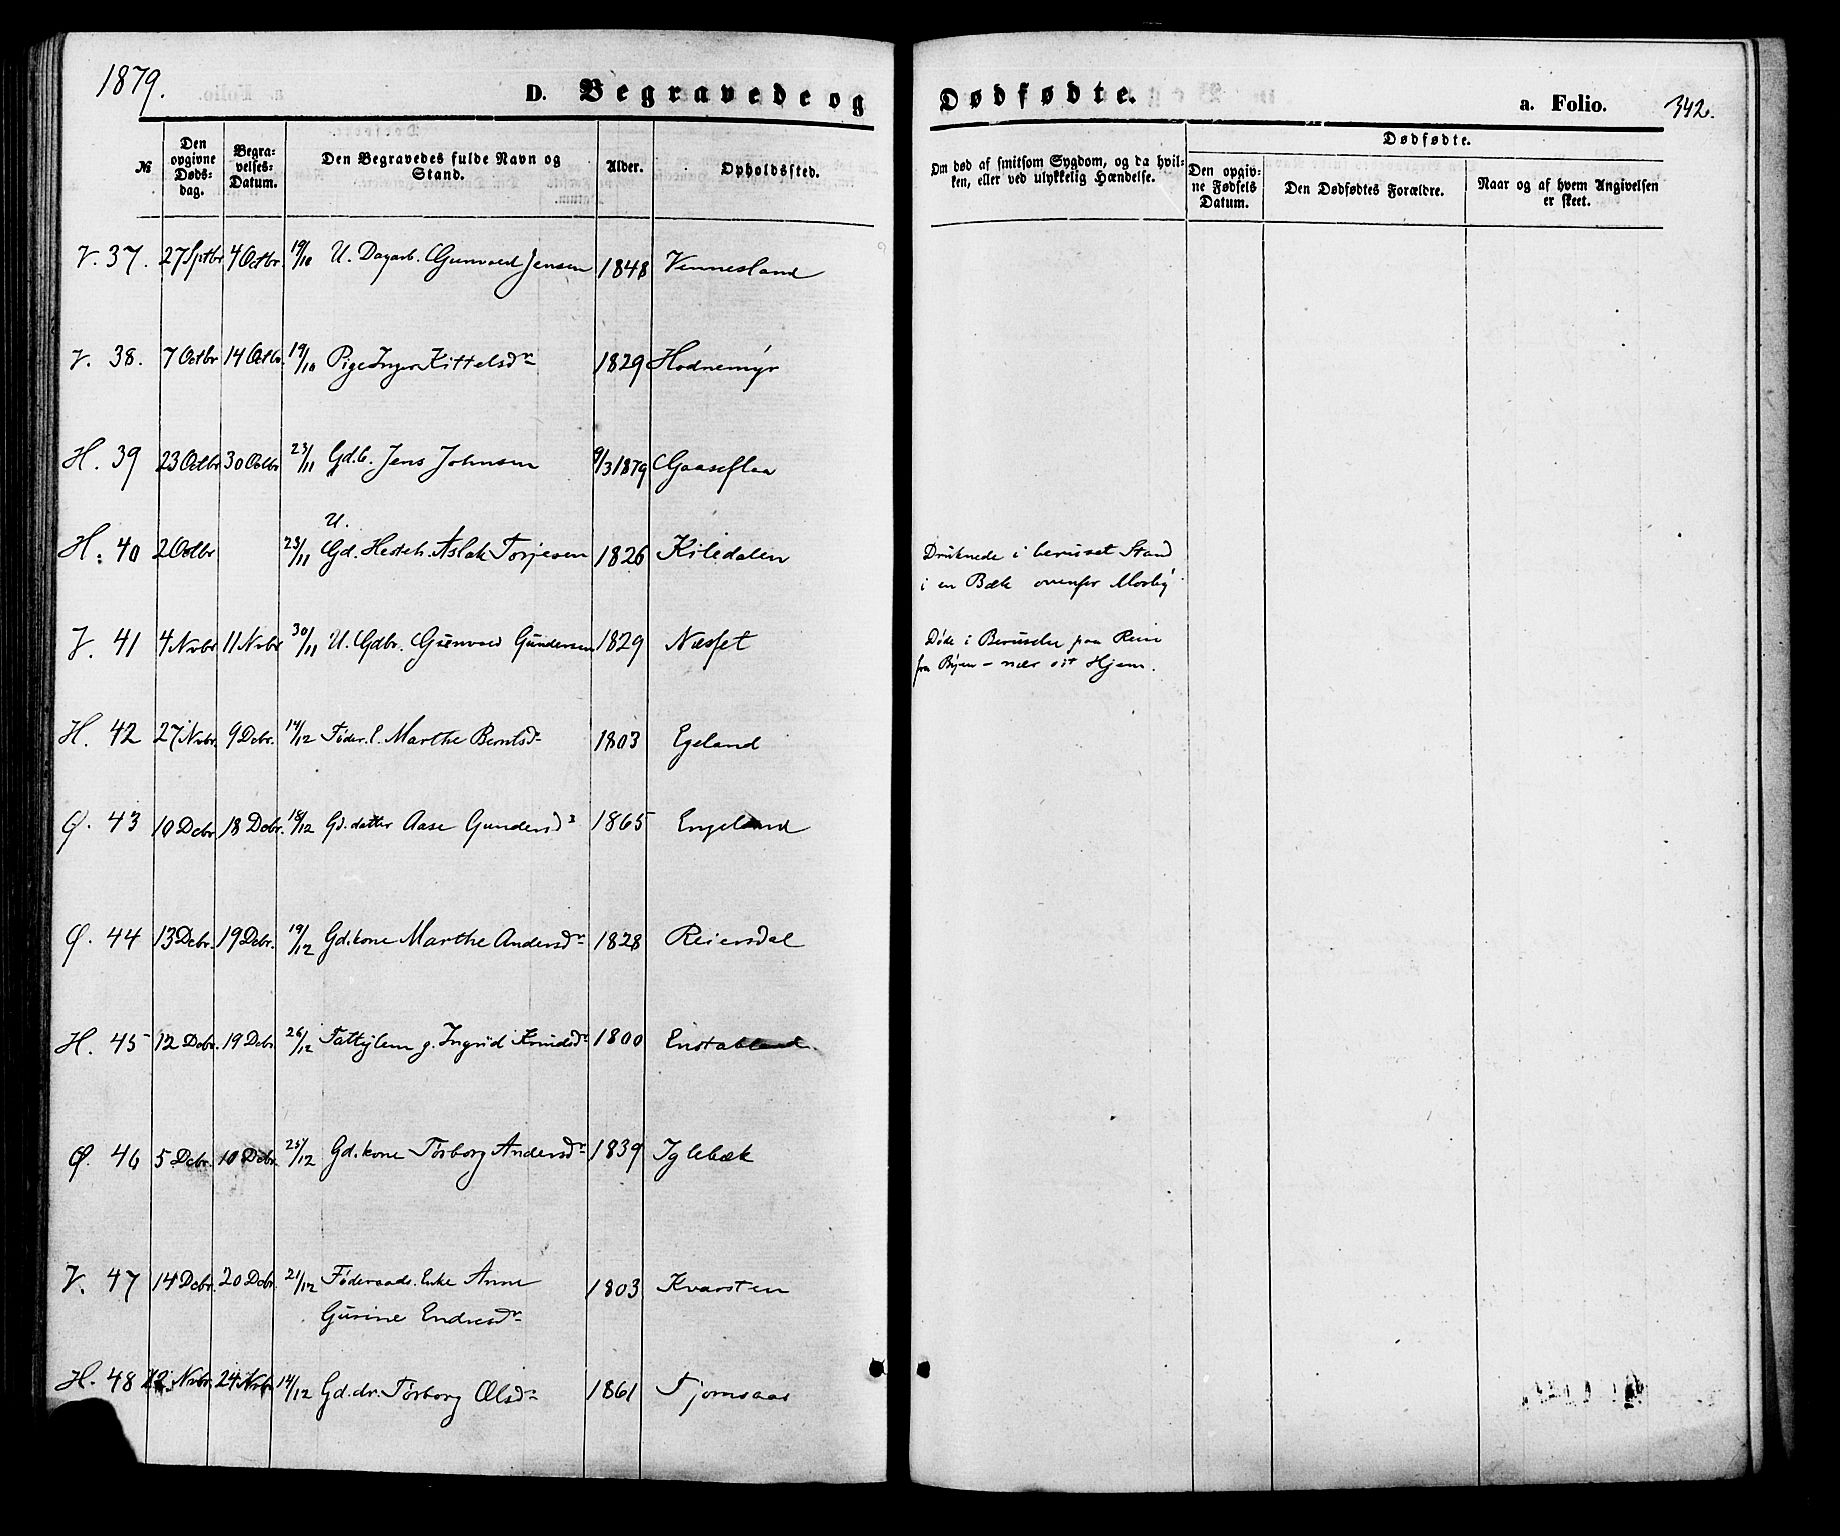 1879.
D. Begravede og Dødfødte. a. Folio. 342.
№ Den opgivne Døds-dag. Begra-velses-Datum. Den Begravedes fulde Navn og Stand. Alder. Opholdssted. Om død af smitsom Sygdom, og da hvil-ken, eller ved ulykkelig Hændelse. Dødfødte. Den opgiv-ne Fødsels Datum. Den Dødfødtes Forældre. Naar og af hvem Angivelsen er skeet.
V. 37. 27 Sptbr 4 Octbr 19/10 U. Dagarb. Gunvald Jensen 1848 Vennesland
V. 38. 7 Octbr 14 Octbr. 19/10 Pige Inger Kittelsdr 1829 Hodnemyr
H. 39 23 Octbr 30 Octbr 23/11 Gd.b. Jens Johnsen 9/3 1879 Gaaseflaa
U.
H. 40 2 Octbr 23/11 Gd. Aslak Torjesen 1826 Kiledalen Druknede i beruset Stand
i en Bæk ovenfor Mosby
V. 41 4 Nvbr 11 Nvbr 30/11 U. Gdbr. Gunvald Gundersen 1829 Næsset Døde i Beruselse paa Reise
fra Byen - nær sit Hjem.
H. 42 27 Nvbr. 9 Dcbr. 14/12 Føder. l. Marthe Berntsdr 1803 Egeland
Ø. 43 10 Dcbr 18 Dcbr. 18/12 Gd. datter Aase Gundersdr 1865 Engeland
Ø. 44 13 Dcbr. 19 Dcbr. 19/12 Gd. kone Marthe Andersdr 1828 Reiersdal
H. 45 12 Dcbr. 19 Dcbr 26/12 Fattiglem g. Ingrid Knudsdr 1800 Enstabland.
Ø. 46 5 Dcbr. 10 Dcbr. 25/12 Gd. kone Torborg Andersdr 1839 Iglebæk
V. 47 14 Dcbr. 20 Dcbr. 21/12 Føderaads. Enke Anne 1803 Kvarsten
Gurine Endresdr
H. 48 12 Nvbr. 24 Nvbr. 14/12 Gd. dr. Torborg Olsdr 1861 Tjomsaas